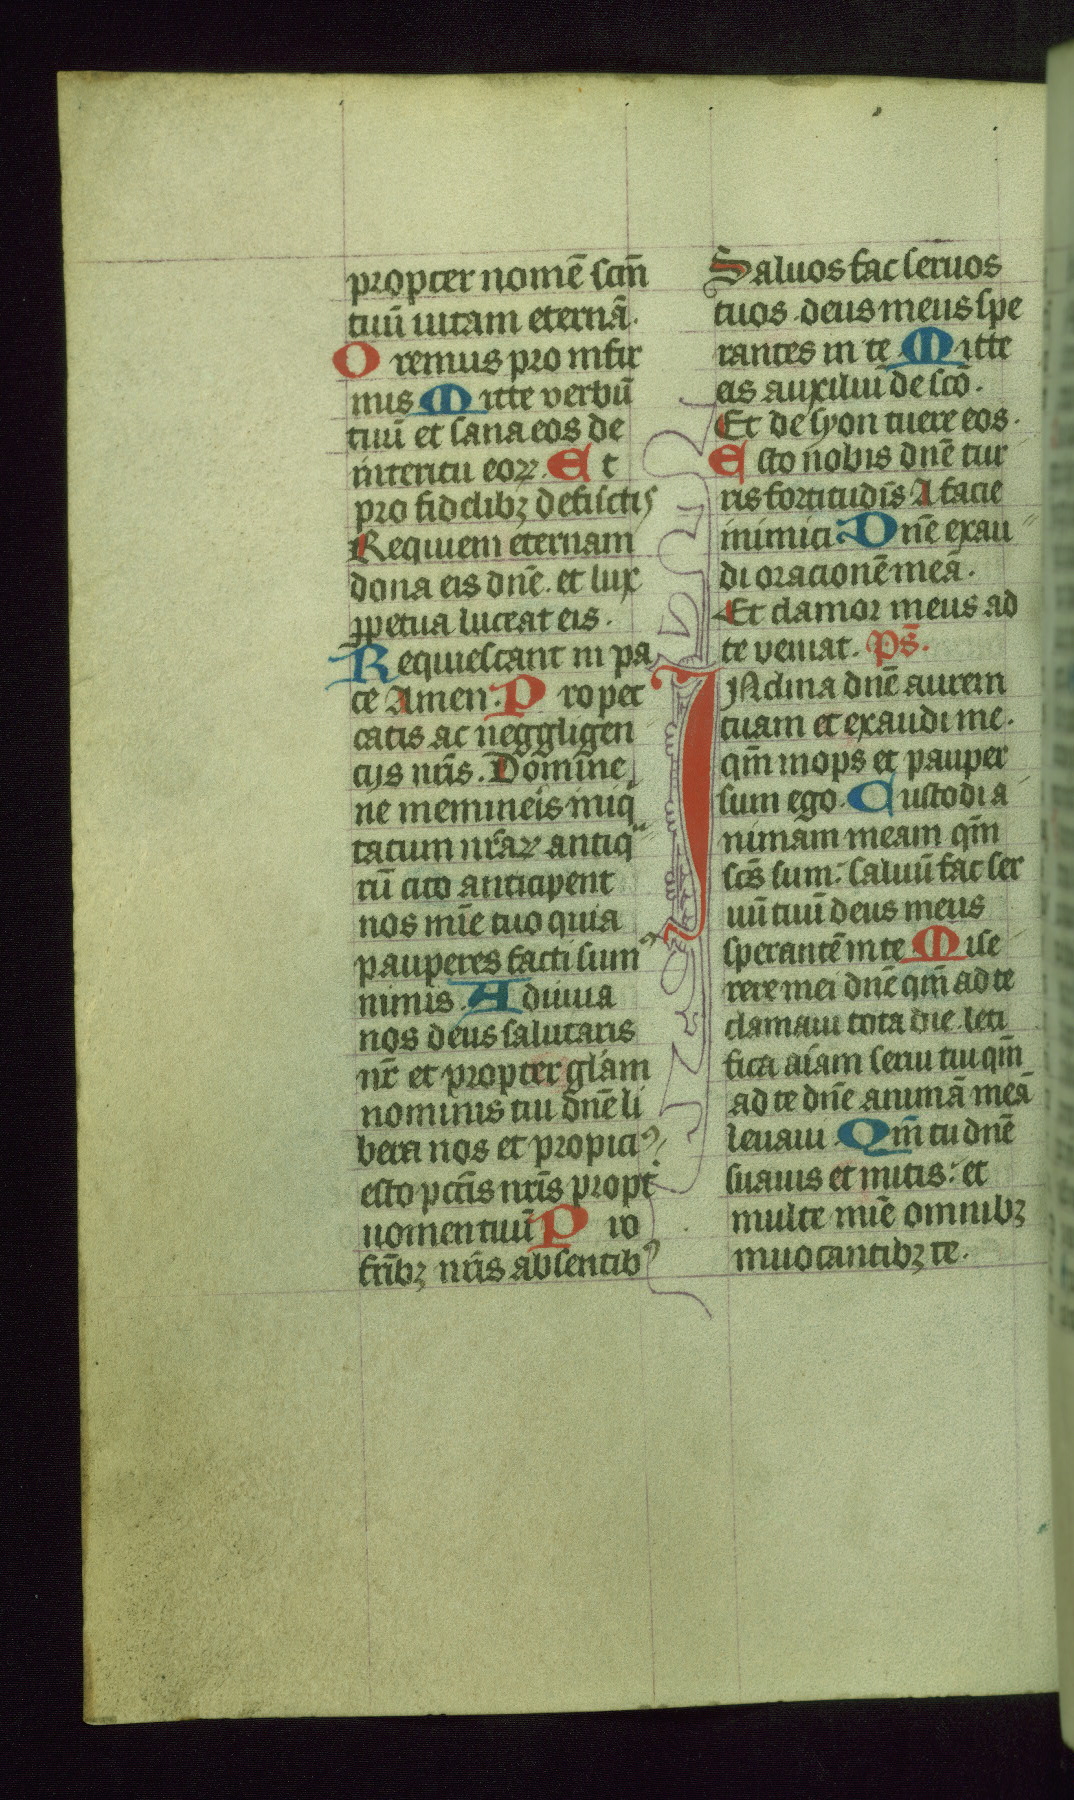 propter nomē scm̄
tuū uitam eternā.
Oremus pro infir
mis Mitte verbū
tuū et sana eos de
interitu eoꝝ. Et
pro fidelibꝫ defūctis
Requiem eternam
dona eis dn̄e. et lux
ꝑpetua luceat eis.
Requiescant in pa
ce Amen. Pro pec
catis ac neggligen
cijs nr̄is. Domine
ne memineis iniq̇
tatum nr̄aꝝ antiq̇
rū cito anticipent
nos mīe tuo quia
pauperes facti sum
nimis. Adiuua
nos deus salutaris
nr̄ et propter glām
nominis tui dn̄e li
bera nos et propici
esto pctīs nr̄is propt
nomen tuū Pro
fr̄ibꝫ nr̄is absentibꝰ
Saluos fac seruos
tuos. deus meus spe
rantes in te Mitte
eis auxiliū de scō.
Et de syon tuere eos.
Esto nobis dn̄e tur
ris fortitudīs A facie
inimici Dn̄e exau
di oracionē meā.
Et clamor meus ad
te veniat. Ps̄.
INclina dn̄e aurem
tuam et exaudi me.
qm̄ inops et pauper
sum ego. Custodi a
nimam meam qm̄
scs̄ sum: saluū fac ser
uū tuū deus meus
sperantē in te Mise
rere mei dn̄e qm̄ ad te
clamaui tota die leti
fica aīam serui tui qm̄
ad te dn̄e animā meā
leuaui Qm̄ tu dn̄e
suauis et mitis: et
multe mīe omnibꝫ
inuocantibꝫ te.